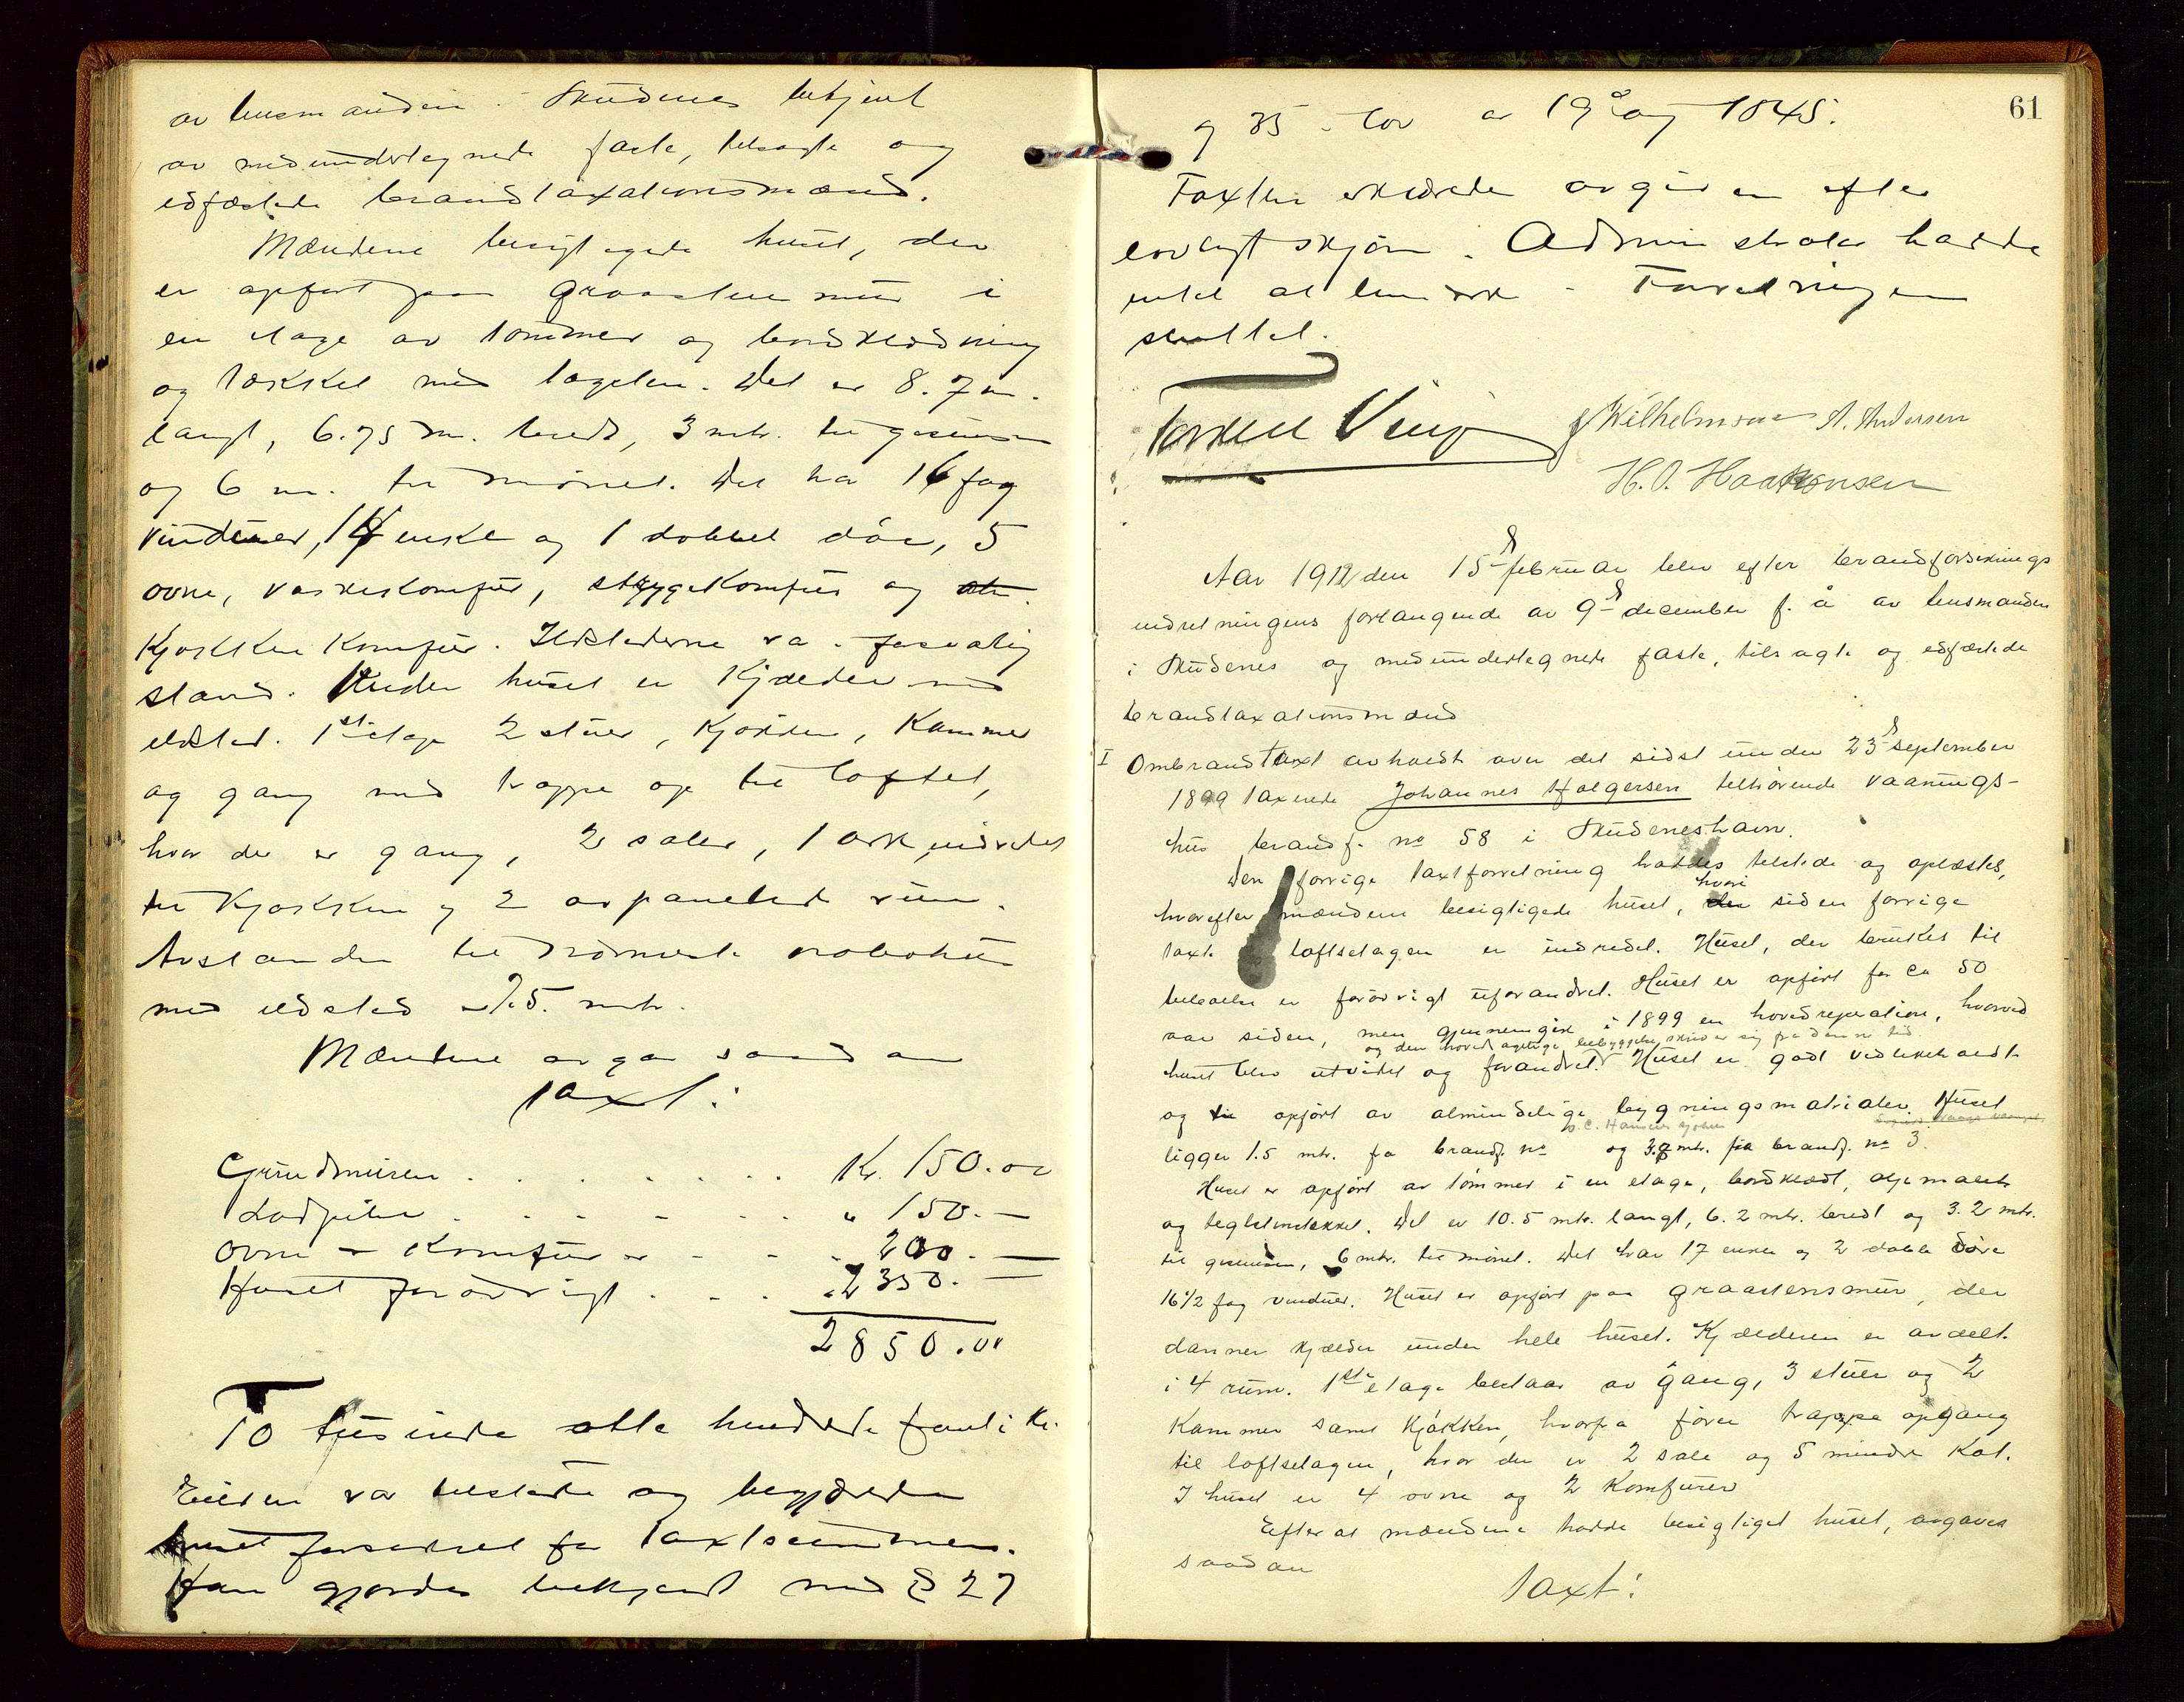 av lensmanden i Skudenes betjent
av medundertegnede faste, tilsagte og
edfæstede brandtaxationsmænd.
Mændene besigtigede huset, der
er opført paa graastensmur i
en etage av tømmer og bordklædning
og tækket med tagsten. Det er 8.7 m.
langt, 6.75 m. bredt, 3 mtr. til gesimsen
og 6 m. til mønet. Det har 16 fag
vinduer, 14 enkle og 1 dobbel dør, 5
ovne, vaskekomfur, strygekomfur og
Kjøkken Komfur. Ildstederne var i forsvarlig
stand. Under huset er Kjælder med
ildsted. 1ste etage 2 stuer, Kjøkken, Kammer
og gang med trappe op til loftet,
hvor der er gang, 2 saler, 1 ark, indredet
til Kjøkken og 2 avpanelede rum.
Avstanden til nærmeste nabohus
med ildsted 7.5 mtr.
Mændene avgav saadan
taxt:
Grundmuren . . . . . . . Kr. 150.00
Lodpiber . . . . . . . " 150.—
Ovne & Komfurer . . . . 200.—
Huset forøvrigt . . . . 2350.—
2850.00
To tusinde otte hundrede femti kr.
Eieren var tilstede og begjærede
huset forsikret for taxtsummen.
Han gjordes bekjendt med § 27
61
og 35 i lov av 19 aug 1845.
Taxten erklæredes avgiven efter
lovligt skjøn. Administrator hadde
intet at bemærke. Forretningen
sluttet.
Torkell Vinje J Wilhelmsen A. Andersen
H. O. Haakonsen
Aar 1912 den 15d februar blev efter brandforsikrings
indretningens forlangende av 9d december f. å av lensmanden
i Skudenes og medundertegnede faste, tilsagte og edfæstede
brandtaxationsmænd
I Ombrandtaxt avholdt over det sidst under 23d september
1899 taxerede Johannes Holgersen tilhørende vaanings-
hus brandf. no 58 i Skudeneshavn.
Den forrige taxtforretning haddes tilstede og oplæstes,
hvorefter mændene besigtigede huset, hvori siden forrige
taxt loftsetagen er indredet. Huset, der brukes til
beboelse er forøvrigt uforandret. Huset er opført for ca 50
aar siden, men gjennemgik i 1899 en hovedreparation, hvorved
og den hovedsagelige bebyggelse skriver sig fra denne tid
huset blev utvidet og forandret. Huset er godt vedlikeholdt
og opført av almindelige bygningsmatrialer. Huset
O. C. Hansens sjøhus
ligger 1.5 mtr. fra brandf. no og 3.8 mtr. fra brandf. no 3.
Huset er opført av tømmer i en etage, bordklædt, oljemalet
og teglstenstækket. Det er 10.5 mtr. langt, 6.2 mtr. bredt og 3.2 mtr.
til gesimsen, 6 mtr. til mønet. Det har 17 enkle og 2 doble døre
16 1/2 fag vinduer. Huset er opført paa graastensmur, der
danner kjælder under hele huset. Kjælderen er avdelt
i 4 rum. 1ste etage bestaar av gang, 3 stuer og 2
Kammer samt Kjøkken, hvorfra fører trappe opgang
til loftsetagen, hvor der er 2 sale og 5 mindre Kot.
I huset er 4 ovne og 2 Komfurer
Efter at mændene hadde besigtiget huset, avgaves
saadan
taxt: